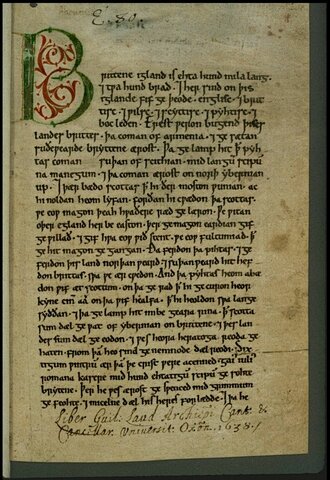 E. 80.
Brittene igland is ehta hund mila lang.
⁊ tƿa hund brad. ⁊ her sind on þis
iglande fif geþeode. englisc. ⁊ brit
tisc. ⁊ ƿilsc. ⁊ scyttisc. ⁊ pyhtisc. ⁊
boc leden. Erest ƿeron bugend þises
landes brittes. þa coman of armenia. ⁊ gesætan
suðeƿearde bryttene ærost. Þa gelamp hit ꝥ pyh
tas coman suþan of scithian. mid langū scipū
na manegum. ⁊ þa coman ærost on norþ ybernian
up. ⁊ þær bædo scottas ꝥ hi ðer moston ƿunian. ac
hi noldan heom lyfan. forðan hi cƿædon þa scottas.
ƿe eoƿ magon þeah hƿaðere ræd gelæron. Ƿe ƿitan
oþer egland her be easton. þer ge magon eardian gif
ge ƿillað. ⁊ gif hƿa eoƿ ƿið stent. ƿe eoƿ fultumiað. ꝥ
ge hit magon gegangan. Ða ferdon þa pihtas. ⁊ ge
ferdon þis land norþanƿeard. ⁊ suþanƿeard hit hef
don brittas. sƿa ƿe ær cƿedon. And þa pyhtas heom abæ
don ƿif æt scottum. on þa gerad ꝥ hi gecuron heora
kyne cinn aa on þa ƿif healfa. ꝥ hi heoldon sƿa lange
syððan. ⁊ þa gelamp hit imbe geara rina. ꝥ scotta
sum dæl geƿat of ybernian on brittene. ⁊ þes lan
des sum dæl geeodon. ⁊ ƿes heora heratoga reoda ge
haten. from þā heo sind genemnode dælreodi. Six
tigum ƿintrū ær þā þe crist ƿere acenned. gaius iulius
romana kasere mid hund ehtatigū scipū gesohte
brytene. Þer he ƿes ærost gesƿenced mid grimmum
gefeohte. ⁊ micelne dæl his heres forlædde. ⁊ þa he
Liber Guil. Laud Archiepi Cant. &
Cancellar. Universit. Oxon. 1638.